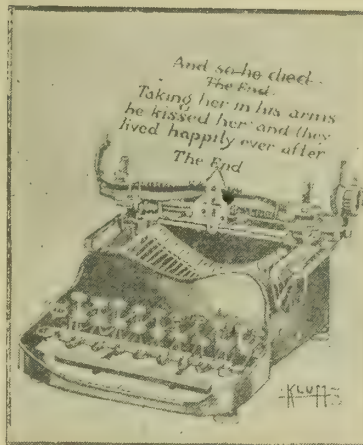 And so he died.
The End
Taking her in his arms
he kissed her and they
lived happily ever after
The End
KLUFF